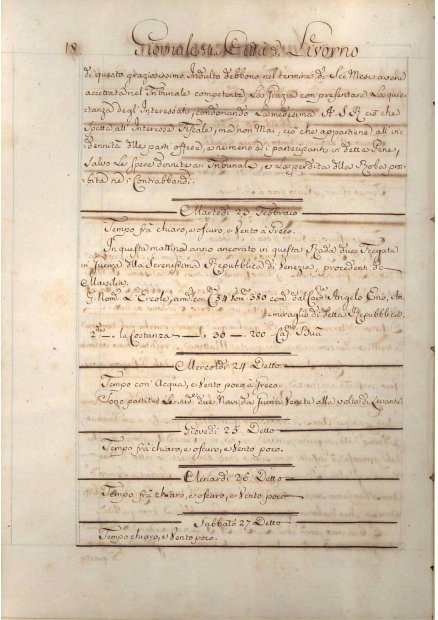 18 Giornale di Città di Livorno
di questo graziosissimo Indulto debbono nel termine di Sei Mesi avere
accettata nel Tribunale competente La Grazia con presentare La quie-
tanza degl'Interessati, condonando La medesima A. S. R. ciò che
Spetta all'Interesse Fiscale, ma non Mai, ciò che appartiene all'in-
dennità delle parti offese, e nemeno ai participanti di dette Pene,
Salve Le Spese dovute ai Tribunale, e La perdita della Roba proi-
bita nei Contrabbandi.
Martedì 23 Febbraio
Tempo frà chiaro, e oscuro, e Vento à Greco.
In questa mattina anno ancorato in questa Rada due Fregate
di Guerra della Serenissima Repubblica di Venezia, procedenti da
Marsilia
P. Nom. L'Ercole, arm. con C. 30 Uom. 350 com. dal Angelo Emo, Am-
miraglio di detta Repubblica.
2. la Costanza 30 - 200 - Cap.
Mercoldì 24 Detto
Tempo con Acqua, e Vento poco à Greco
Sono partite Le due Navi da Guerra Venete alla volta di Levante
Giovedì 25 Detto
Tempo frà chiaro, e oscuro, e Vento poco.
Venardì 26 Detto
Tempo frà chiaro, e oscuro, e Vento poco
Sabbato 27 Detto
Tempo chiaro, e Vento poco.